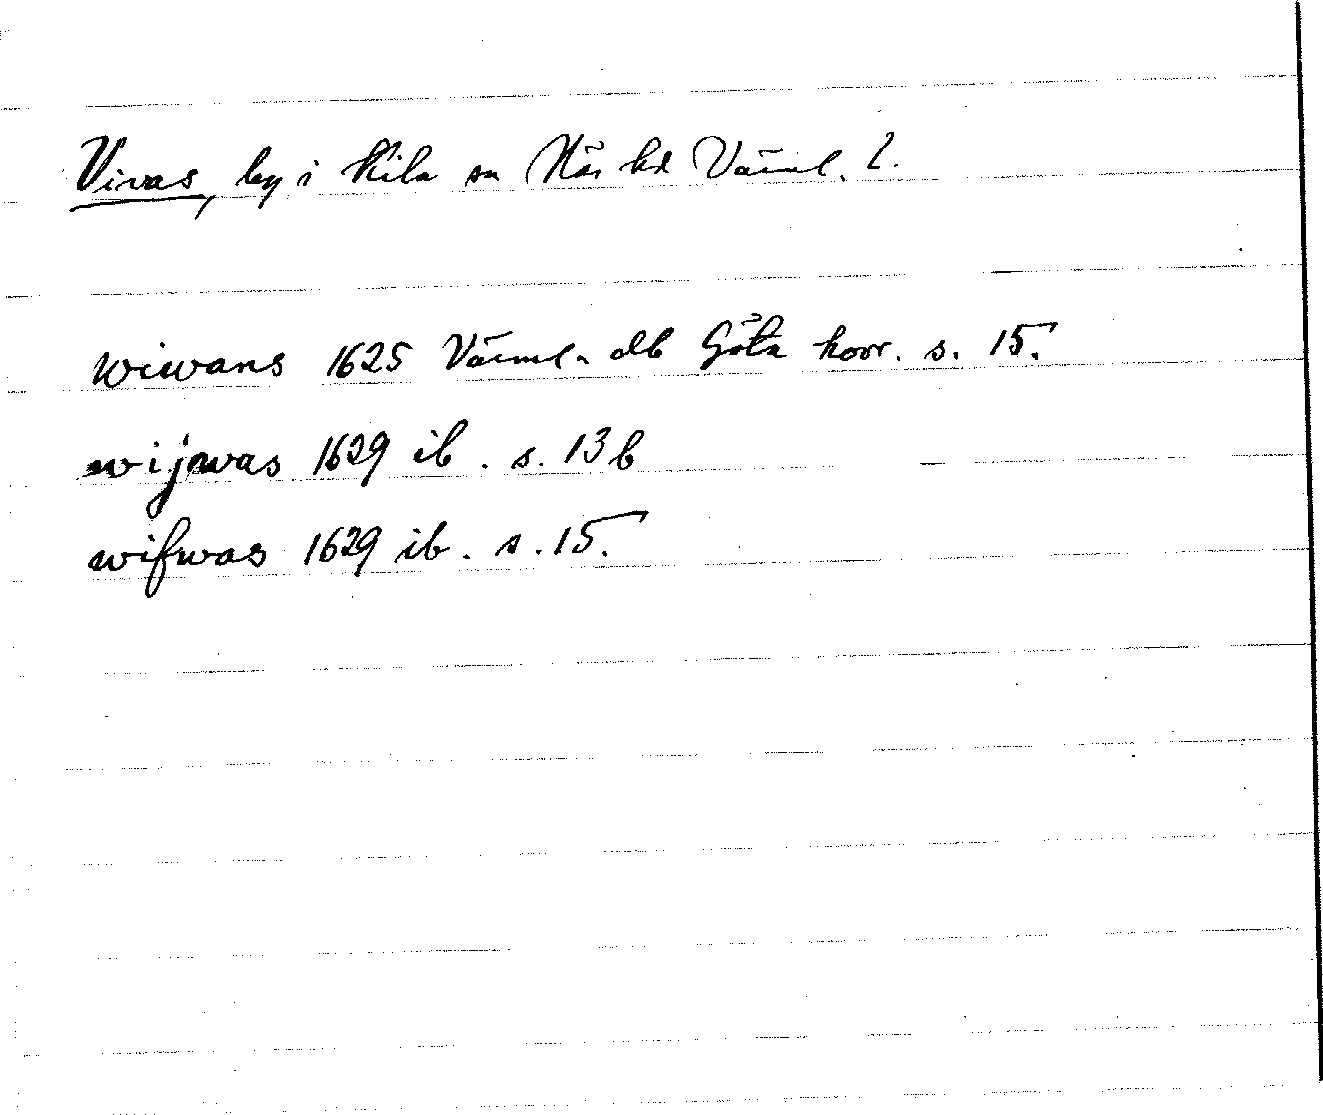 Vivas, by i Kila sn Näs hd Värml. l.
wiwans 1625 Värml. dlb Göta hovr. s. 15.
wijwas 1629 ib. s. 13b
wifwas 1629 ib. s. 15.